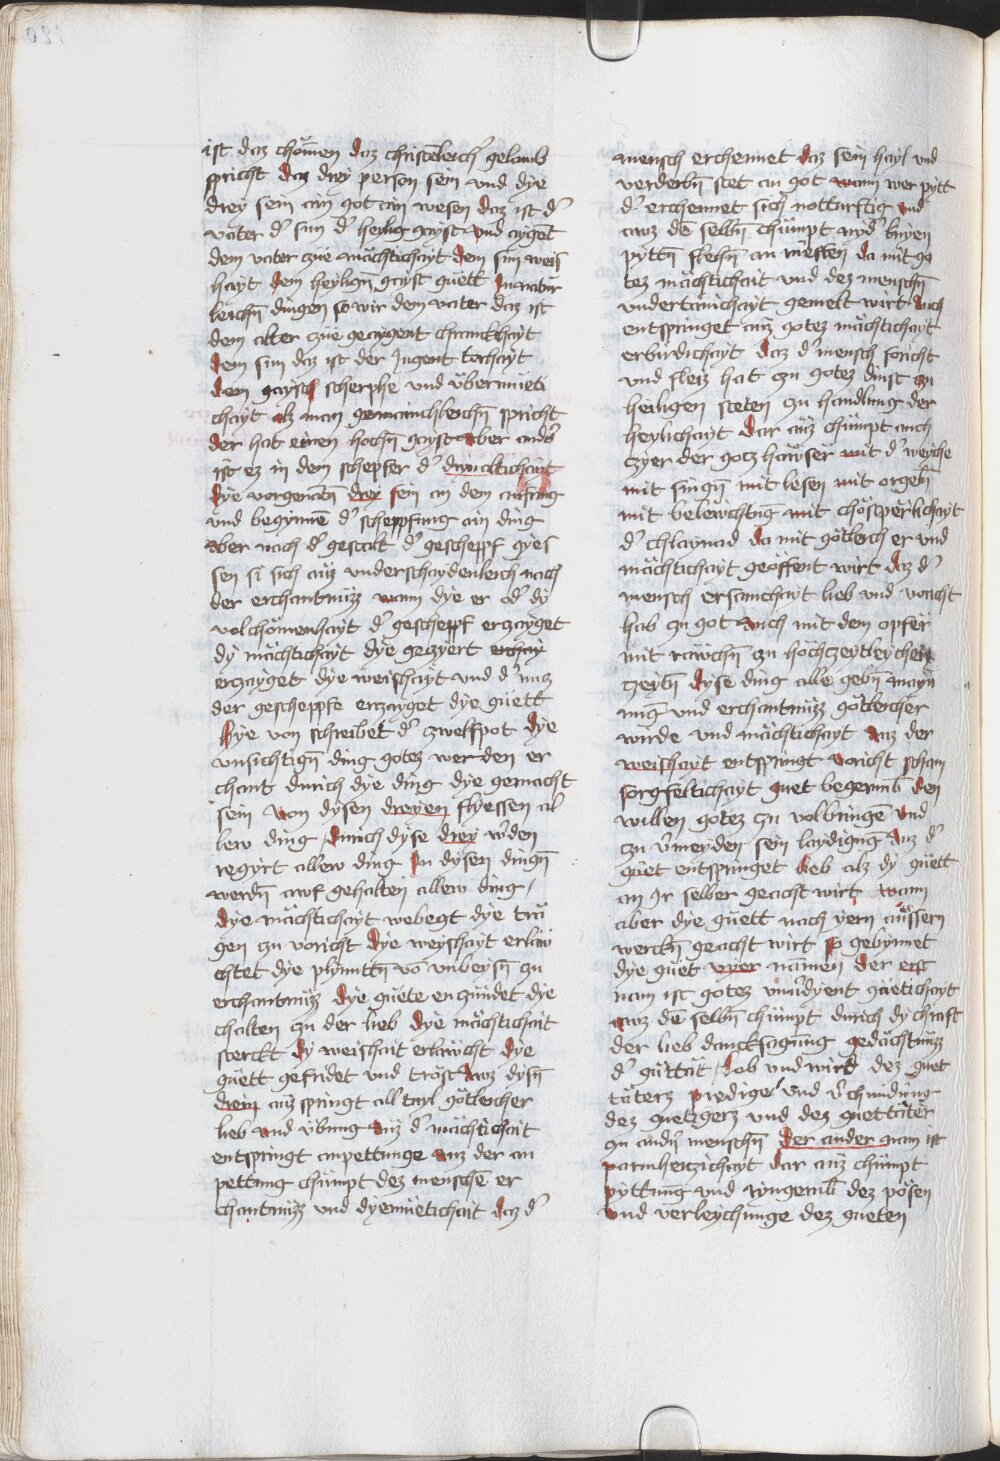 ist daz chomen daz christenleich gelaub
spricht daz drey person sein und dye
drey sein ain got ain wesen daz ist d'
vater d' sun d' heylig gayst und ayget
dem vater zue mächtichayt dem sun weis
hayt dem heylign gayst guett In natur
leichn dingen so wir dem vater daz ist
dem alter zue geaygent chranckhayt
dem sun daz ist der Jugent torhayt
dem gayst scherphe und übermueti
chayt alz man gemainchleichn spricht
der hat einen hochn gayst aber anders
ist ez in dem schepfer d' drivaltichait
dye vorgenten drey sein an dem anfang
und begynne d' scheppfung ain ding
aber nach d' gestalt d' gescheppf gyes
sen si sich auz underschaydenleich nach
der erchantnuzz wann dye er od' dy
volchomenhayt d' gescheppf erzayget
dy mächtichayt dye geczyert erchay
erzayget dye weishayt und d' nucz
der gescheppfe erzayget dye guett
Hye von schreibet d' zwelfpot dye
unsichtign ding gotez werden er
chant durich dye ding dye gemacht
sein Von dysen dreyen flyessen al
lew ding durich dyse drey w'den
regyrt allew ding In dysen dingn
werdn auf gehalten allew ding
dye mächtichayt webegt dye trä
gen zu voricht dye weyshayt erläu
chtet dye plynnttn vo unbeysn zu
erchantnuzz dye guete enczündet dye
chalten zu der lieb dye mächtichait
sterckt dy weishait erläwcht dye
guett gefridet und tröst Awz dysn
drein auz springt all tayl götleicher
lieb und übung auz d' mächtichait
entspringt anpettunge auz der an
pettung chümpt dez mensche er
chantnuzz und dyemuetichait daz d'
mensch erchennet daz sein hayl und
verderbn stet an got wann wer pytt
d' erchennet sich notturftig und
awz de selbn chümpt nyd' knyen
pyttn flehn an ruesten da mit go
tez mächtichait und dez menschn
undertänichayt gemelt wirt Auch
entspringet auz gotez mächtichayt
erbirdichayt daz d' mensch foricht
und fleiz hat zu gotez dinst zu
heiligen steten zu handlung der
heylichayt dar auz chümpt auch
czyer der gotz hawser mit d' weyche
mit singn mit lesen mit orgeln
mit belewchtung mit chöstperlichayt
d' chlaynad da mit götleich er und
mächtichayt geöffent wirt daz d'
mensch ersamchayt lieb und voricht
hab zu got Auch mit dem opfer
mit räwchn zu höchzeytleychen
czeytn dyse ding alle gebn mayn
nug und erchantnuzz götleicher
wirde und mächtichayt Auz der
weishayt entspringt voricht scham
sorgfeltichayt guet begerund den
willen gotez zu volbringe und
zu v'meyden sein laydigung Auz d'
güet entspringet lieb alz dy güett
an yr selber geacht wirt Wann
aber dye güett nach yern aussern
werckn geacht wirt so gebynnet
dye güet vyer namen der erst
nam ist gotez unv'dyent guetichayt
awz de selbn chümpt durich dy chraft
der lieb dancksagung gedächtnuzz
d' guttät lob und wird dez guet
täterz predige und v'chundung
dez guetzgerz und dez guettäter
zu andn menschn der ander nam ist
parmherzichayt dar auz chümpt
pyttung und ryngerung dez pösen
und verleychunge dez gueten